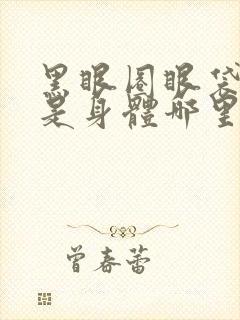 黑眼圈眼袋
是身體哪里
曾春蕾